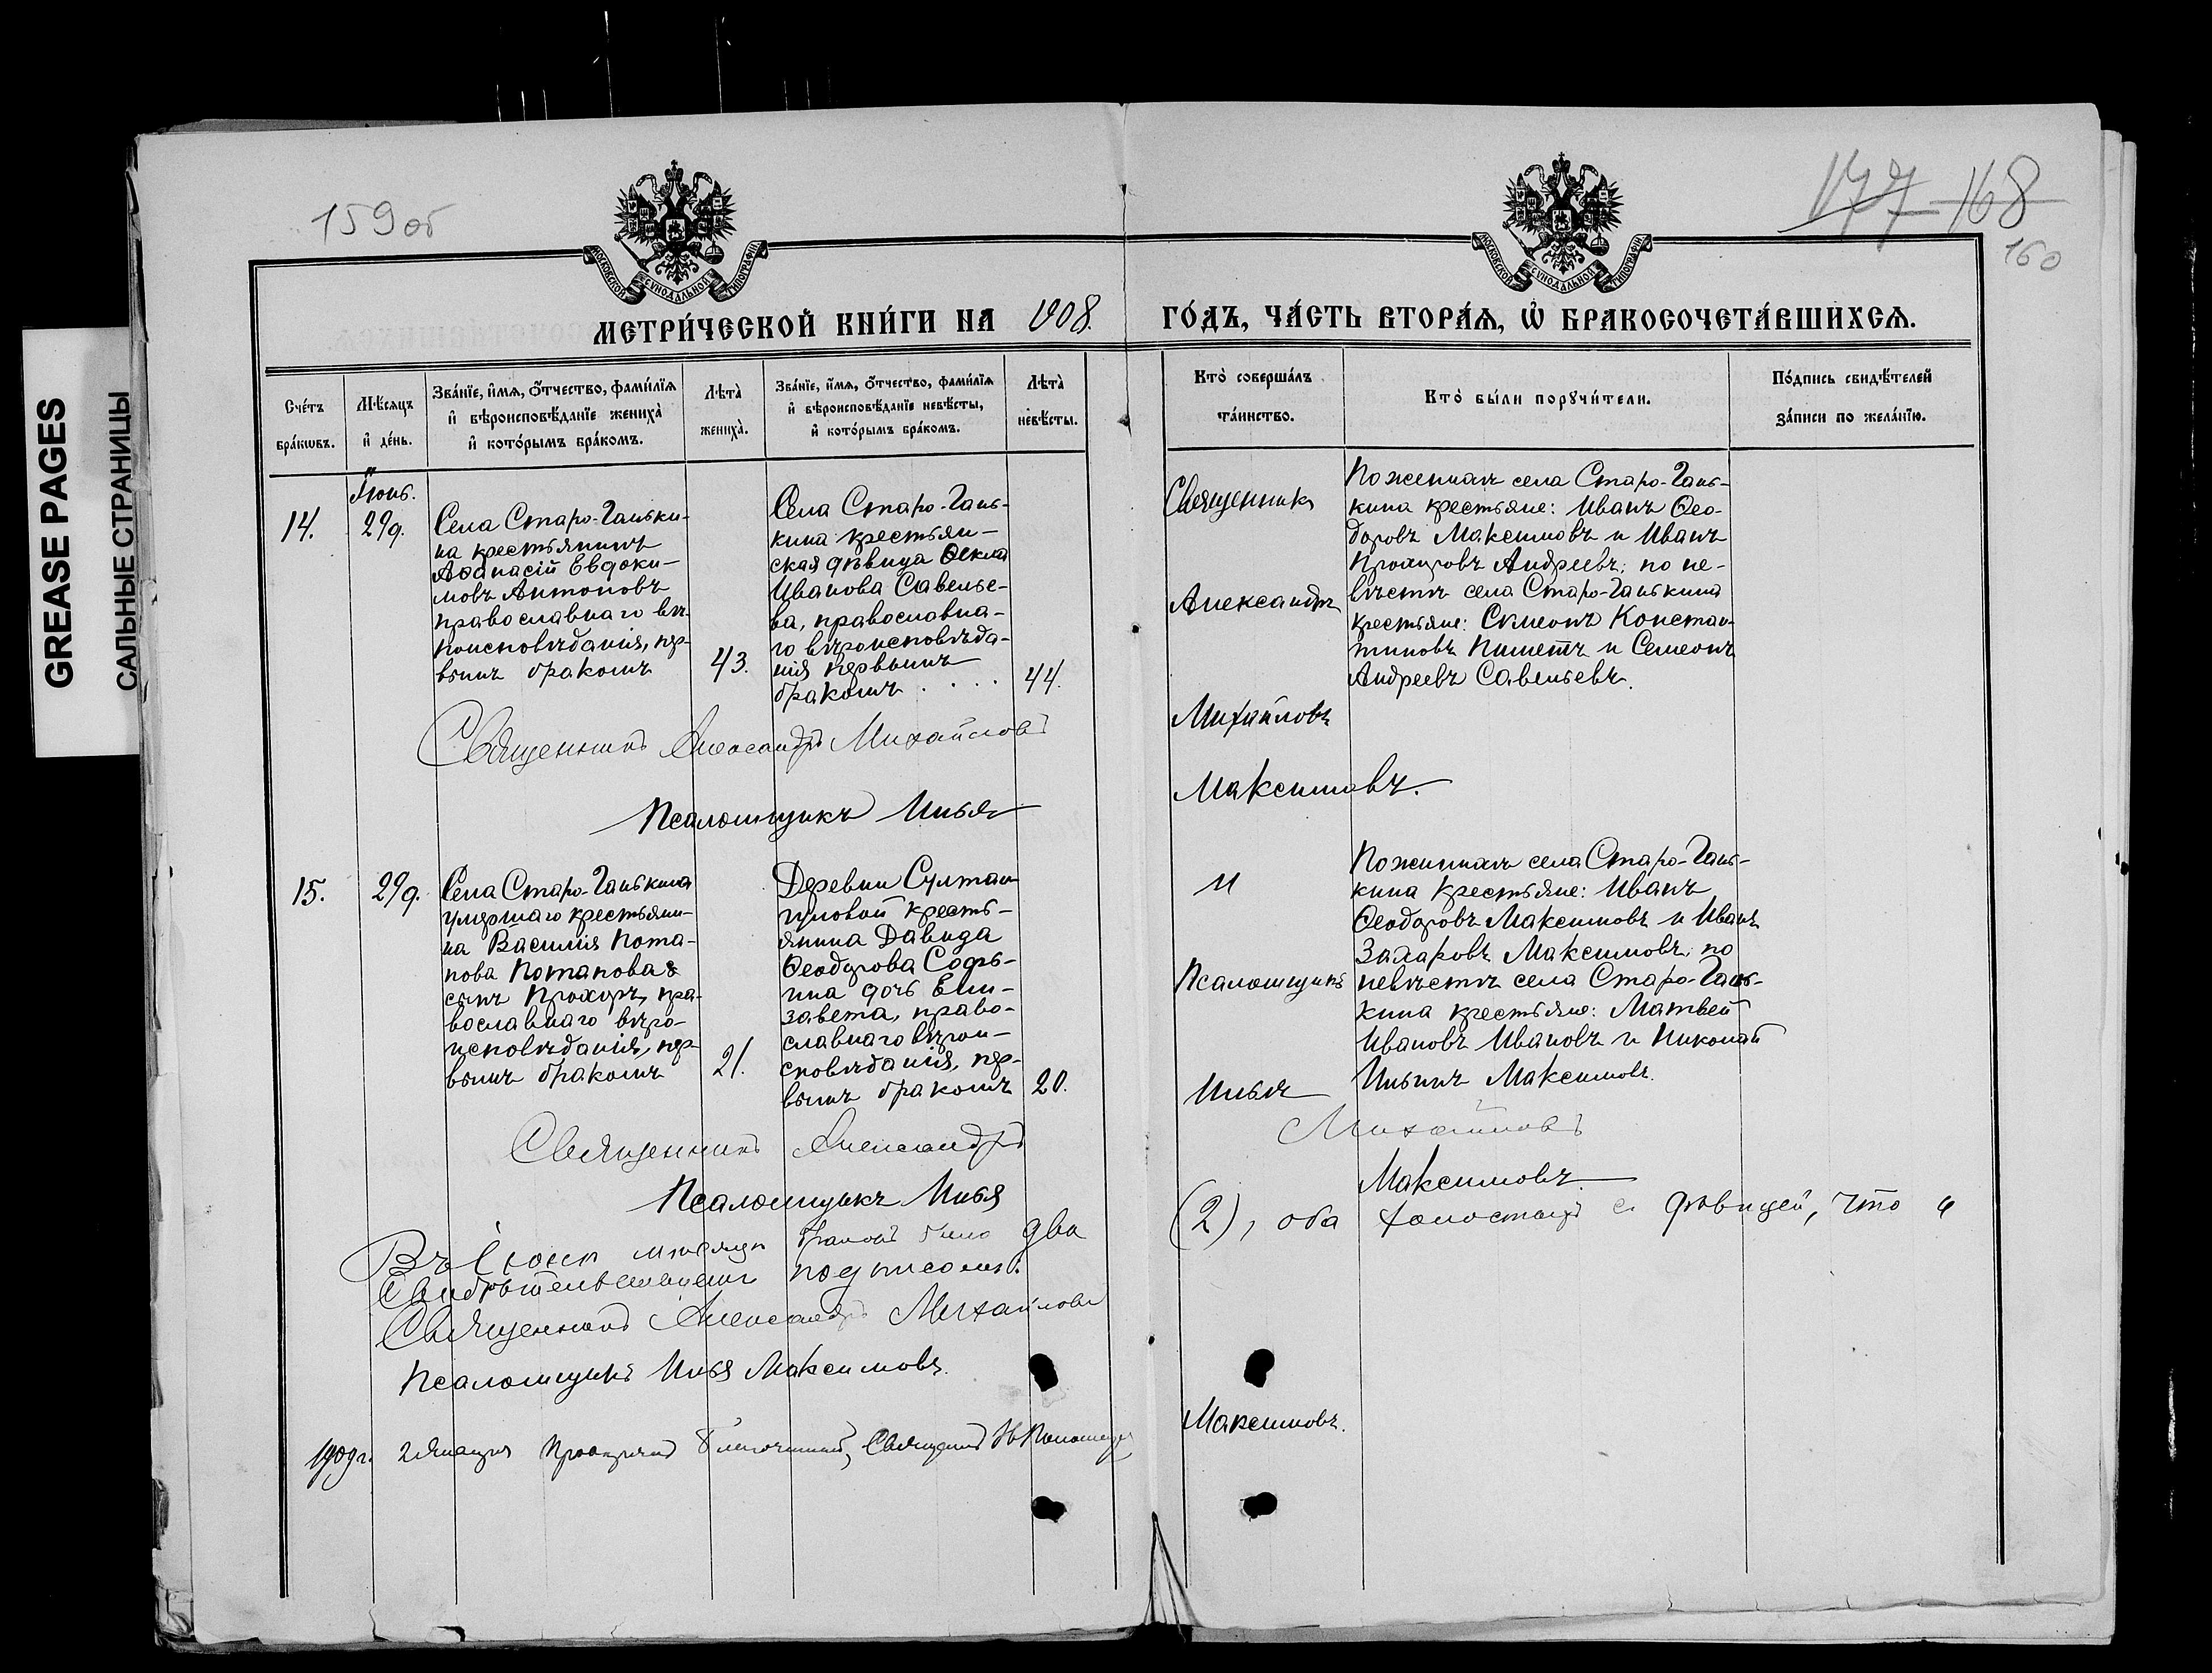 GREASE PAGES
САЛЬНЫЕ СТРАНИЦЫ
159об
177 168
160
МОСКОВСКОЙ СѴНОДАЛЬНОЙ ТИПОГРАФІИ
МОСКОВСКОЙ СѴНОДАЛЬНОЙ ТИПОГРАФІИ
МЕТРИ́ЧЕСКОЙ КНИ́ГИ НА 1908. ГО́ДЪ, ЧА́СТЬ ВТОРА́Ѧ, Ѡ҆ БРАКОСОЧЕТА́ВШИХСѦ.
Сче́тъ
бра́кѡвъ.
Мѣ́сѧцъ
и҆ де́нь.
Зва́нїе, и҆́мѧ, ѻ҆́тчество, фами́лїѧ
и҆ вѣроисповѣ́данїе жениха̀
и҆ кото́рымъ бра́комъ.
Лѣта̀
жениха̀.
Зва́нїе, и҆́мѧ, ѻ҆́тчество, фами́лїѧ
и҆ вѣроисповѣ́данїе невѣ́сты,
и҆ кото́рымъ бра́комъ.
Лѣта̀
невѣ́сты.
Кто̀ соверша́лъ
та́инство.
Кто̀ бы́ли порꙋчи́тели.
По́дпись свидѣ́телей
за́писи по жела́нїю.
14.
Іюнь.
29.
Села Старо-Ганьки-
на крестьянинъ
Аѳанасій Евдоки-
мовъ Антоновъ
православнаго вѣ-
роисповѣданія, пер-
вымъ бракомъ
43.
Села Старо-Гань-
кина крестьян-
ская дѣвица Ѳекла
Иванова Савелье-
ва, православна-
го вѣроисповѣда-
нія первымъ
бракомъ . . . .
44.
Священникъ
Александръ
Михайловъ
По женихѣ села Старо-Гань-
кина крестьяне: Иванъ Ѳео-
доровъ Максимовъ и Иванъ
Прохоровъ Андреевъ; по не-
вѣстѣ села Старо-Ганькина
крестьяне: Симеонъ Констан-
тиновъ и Семеонъ
Андреевъ Савельевъ.
Священникъ Александръ Михайловъ
Псаломщикъ Илья Максимовъ.
15.
29.
Села Старо-Ганькина
умершаго крестьяни-
на Василія Пота-
пова Потапова
сынъ Прохоръ, пра-
вославнаго вѣро-
исповѣданія, пер-
вымъ бракомъ
21.
Деревни Султан-
гуловой кресть-
янина Давида
Ѳеодорова Софь-
ина дочь Ели-
завета, право-
славнаго вѣрои-
сповѣданія, пер-
вымъ бракомъ
20.
и
Псаломщикъ
Илья
По женихѣ села Старо-Гань-
кина крестьяне: Иванъ
Ѳеодоровъ Максимовъ и Иванъ
Захаровъ Максимовъ; по
невѣстѣ села Старо-Гань-
кина крестьяне: Матвей
Ивановъ Ивановъ и Николай
Ильинъ Максимовъ.
Священникъ Александръ Михайловъ
Псаломщикъ Илья Максимовъ.
Въ Іюнѣ мѣсяцѣ браковъ было два (2), оба холостыхъ съ дѣвицей, что и
свидѣтельствуемъ подписомъ.
Священникъ Александръ Михайловъ
Псаломщикъ Илья Максимовъ.
Максимовъ.
1909 г. 2 Января Благочинный, Священникъ